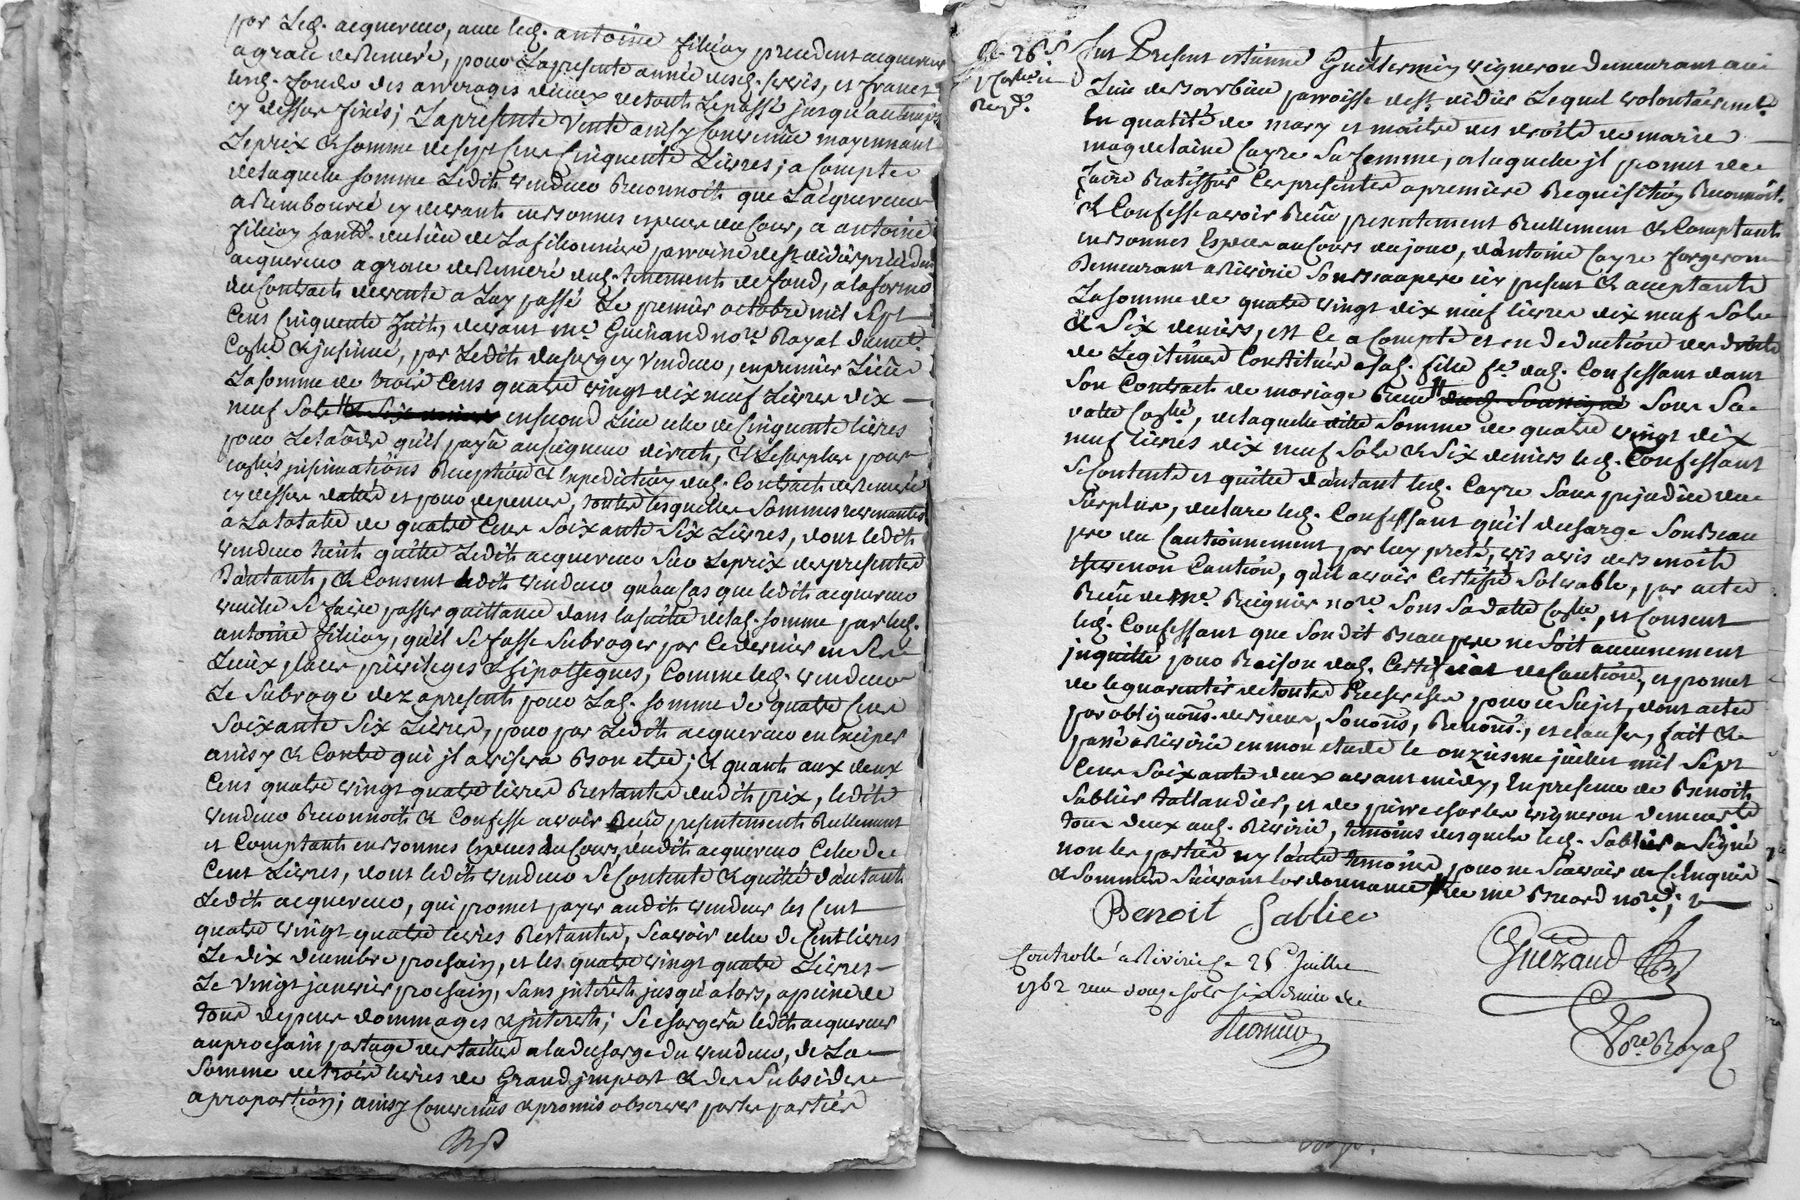 par led. acquereur, avec led. antoine filliou precedent acquereur
a grace de Remeré, pour La presente année desd. servis, et francs
ung. fonds des arrerages d'iceux de tout Le passé jusqu'au temps
cy dessus fixés; La presente Vente ainsy Convenüe moyennant
Le prix & somme de sept Cens Cinquente Livres; a Compte
de laquelle somme Ledit vendeur Reconnoit que L'acquereur
a Rembourcé cy devant en bonnes especes du Cour, a antoine
filliou du lieu de La filionniere parroisse de st didier precedent
acquereur a grace de Remeré dud. tenement de fond, a la forme
du Contract de vente a Luy passé Le premier octobre mil Sept
Cens Cinquente huit, devant me Guérand nore Royal dument
Collé & jnsinué, par Ledit vendeur, en premier Lieu
La somme de trois Cens quatre vingt dix neuf Livres dix
neuf Sols en second Lieu celle de Cinquente livres
pour Le laods qu'il paya au seigneur direct, & Le surplus pour
collés, insinuations Reception & Expedition dud. Contract de Remeré
cy dessus datté et pour depens, toutes lesquelles Sommes revenantes
a La totale de quatre Cens Soixante Six Livres, dont ledit
vendeur tient quitte Ledit acquereur Sur Le prix des presentes
D'autant, & Consent ledit vendeur qu'au Cas que ledit acquereur
veuille Se faire passer quittance dans la suitte de lad. somme par led.
antoine filliou, qu'il Se fasse Subroger par Ce dernier en Ses
Lieux, places privileges & hipotheques, Comme led. vendeur
Le Subroge dez a present pour Lad. somme de quatre Cens
Soixante Six Livres, pour par Ledit acquereur en Exciper
ainsy & Contre qui jl avisera Bon etre; & quant aux deux
Cens quatre vingt quatre livres Restantes dudit prix, ledit
vendeur Reconnoit & Confesse avoir Reçu presentement Réellement
et Comptant en bonnes Especes du Cours, dudit acquereur Celle de
Cent Livres, dont ledit vendeur Se Contente & quitte d'autant
Ledit acquereur, qui promet payer audit vendeur les Cent
quatre vingt quatre livres Restantes, Scavoir celle de Cent livres
Le dix decembre prochain, et les quatre vingt quatre Livres
Le Vingt janvier prochain, sans jnterets jusqu'alors, a peine de
tous depens dommages & jnterests; Se chargera ledit acquereur
au prochain partage des tailles a la decharge du vendeur, de La
Somme de trois livres de Grand jmpost & des Subsides
a proportion; ainsy Convenus & promis observer par les parties
Du 26e
Collée
Reçu
fut Present estienne Guillermin vigneron demeurant au
Lieu de parroisse de st didier Lequel volontairement
En qualité de mary et maitre des droits de marie
magdelaine Cayre Sa femme, a laquelle jl promet de
faire Ratiffier Ces presentes a premiere Requisition Reconnoit
& Confesse avoir Reçu presentement Réellement & Comptant
en bonnes Especes au Cours du jour, d'antoine Cayre forgeron
Demeurant a Riverie Son beaupere icy present & acceptant
La somme de quatre vingt dix neuf livres dix neuf Sols
& Six deniers, et Ce a Compte et en deduction des droits
de Legitimes Constitués a sad. fille fe dud. Confessant dans
Son Contract de mariage Reçu Sous Sa
datte Collé, de laquelle dite Somme de quatre vingt dix
neuf livres dix neuf Sols & Six deniers led. Confessant
Se Contente et quitte d'autant led. Cayre Sans prejudice du
Surplus, declare led. Confessant qu'il decharge Son Beau
pere du Cautionnement par luy preté, vis a vis de Benoite
Caution, qu'il avoit Certifié Solvable, par acte
Reçu de me Reignier nore Sous Sa datte Collé, et Consent
led. Confessant que Sondit Beaupere ne Soit aucunement
jnquietté pour Raison dud. Certificat de Caution, et promet
de le guarentir de toutes Recherches pour ce Sujet, dont acte
par obligations de biens, Soumons, Renons, et clauses, fait &
passé a Riverie en mon etude le onzieme juillet mil Sept
Cens Soixante deux avant midy, En presence de Benoit
Sablier taillandier, et de pierre charles vigneron demeurants
tous deux aud. Riverie, temoins desquels led. Sablier a Signé
non les parties ny l'autre temoin, pour ne Scavoir de Ce Enquis
& Sommés Suivant l'ordonnance
Benoit Sablier
Guérand
Nore Royal
Controllé a Riverie le 26e Juillet
1762 reçu douze sols six deniers